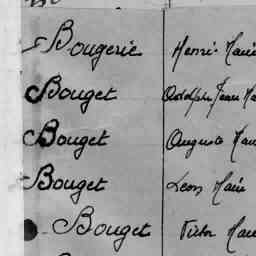 Bougerie Henri Marie
Bouget Adolphe Jean Ma
Bouget Auguste Mar
Bouget Leon Marie
Bouget Victor Mar